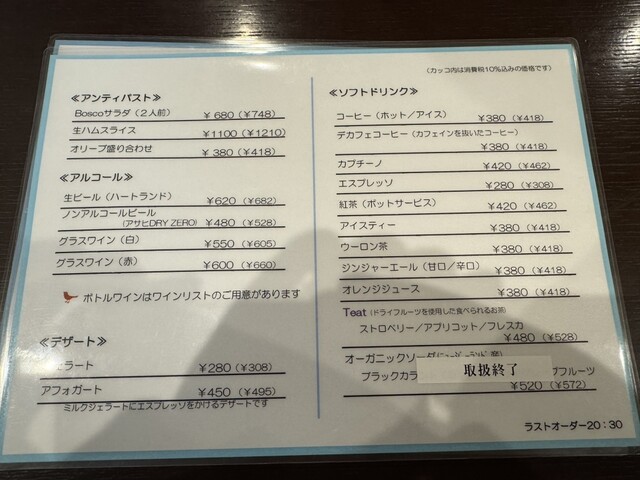 (カッコ内は消費税10%込みの価格です)
≪アンティパスト≫
Boscoサラダ(2人前) ¥680(¥748)
生ハムスライス ¥1100(¥1210)
オリーブ盛り合わせ ¥380(¥418)
≪アルコール≫
生ビール(ハートランド) ¥620(¥682)
ノンアルコールビール
(アサヒDRY ZERO) ¥480(¥528)
グラスワイン(白) ¥550(¥605)
グラスワイン(赤) ¥600(¥660)
ボトルワインはワインリストのご用意があります
≪デザート≫
ェラート ¥280(¥308)
アフォガート ¥450(¥495)
ミルクジェラートにエスプレッソをかけるデザートです
≪ソフトドリンク≫
コーヒー(ホット/アイス) ¥380(¥418)
デカフェコーヒー(カフェインを抜いたコーヒー)
¥380(¥418)
カプチーノ ¥420(¥462)
エスプレッソ ¥280(¥308)
紅茶(ポットサービス) ¥420(¥462)
アイスティー ¥380(¥418)
ウーロン茶 ¥380(¥418)
ジンジャーエール(甘口/辛口) ¥380(¥418)
オレンジジュース ¥380(¥418)
Teat(ドライフルーツを使用した食べられるお茶)
ストロベリー/アプリコット/フレスカ
¥480(¥528)
オーガニックソーダ(ニュージーランド産)
ブラックカラ 取扱終了 プフルーツ
¥520(¥572)
ラストオーダー20:30